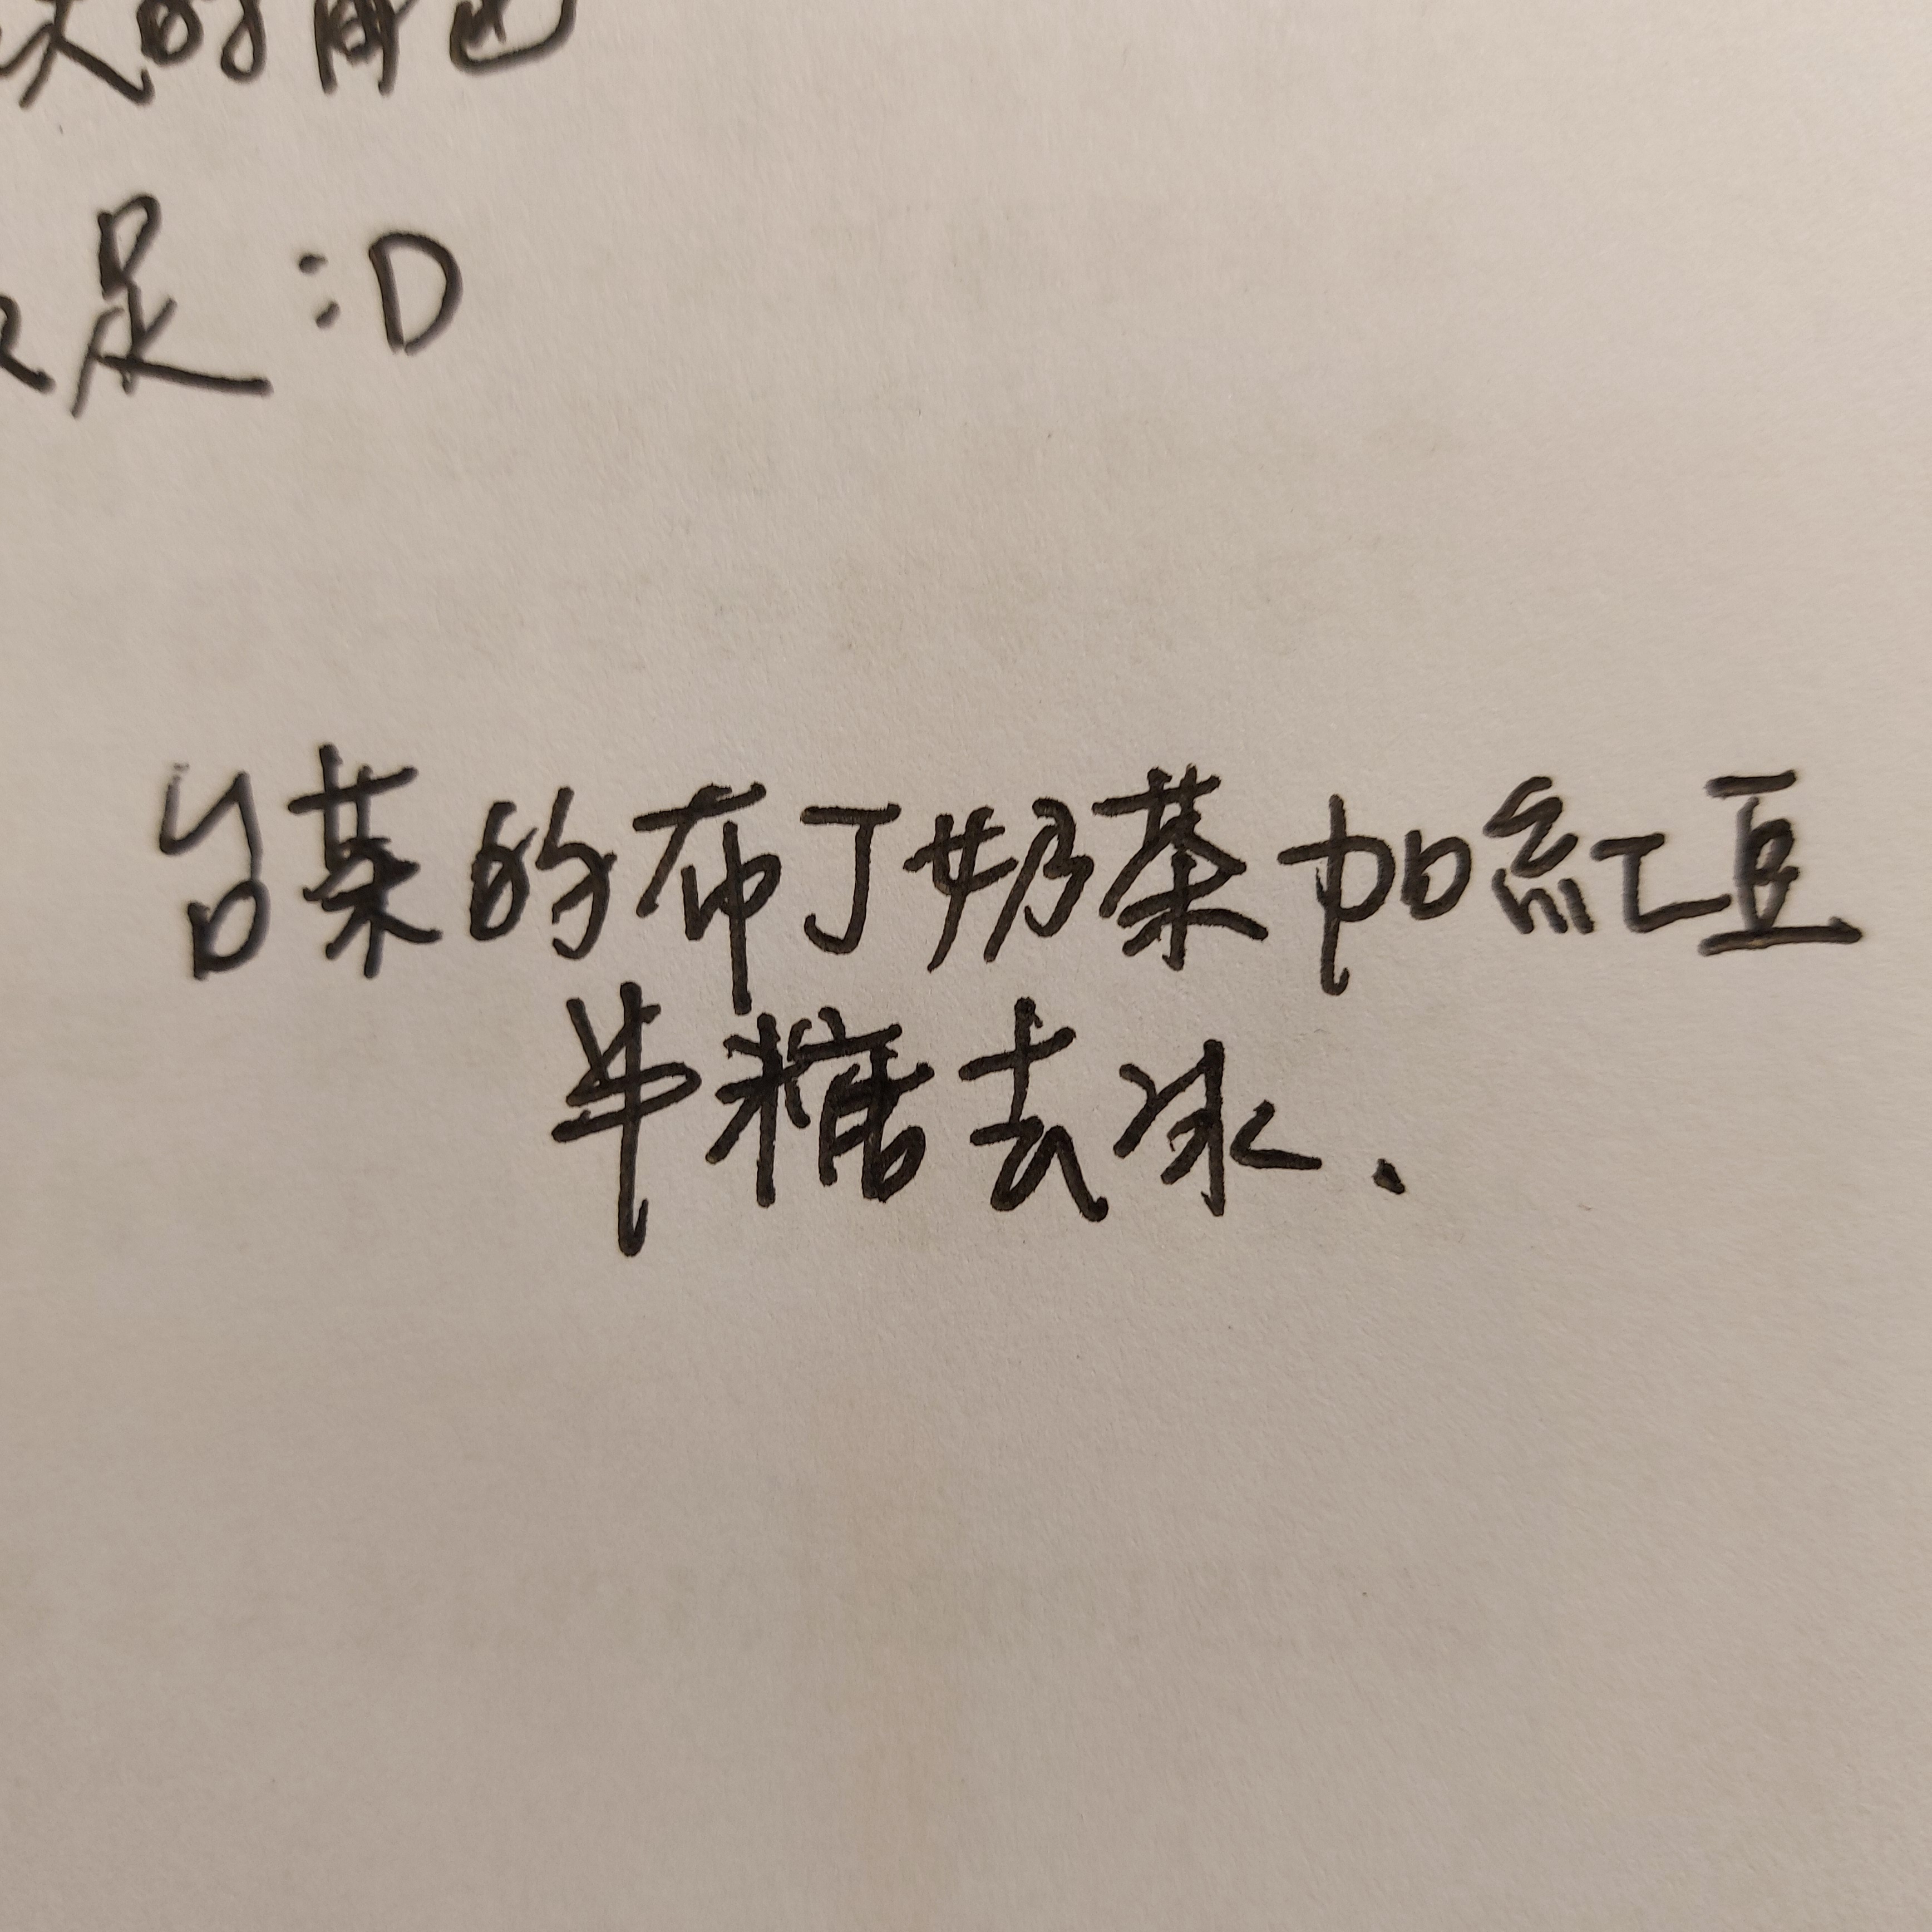 的
足 :D
台菜的布丁奶茶加紅豆
半糖去冰.